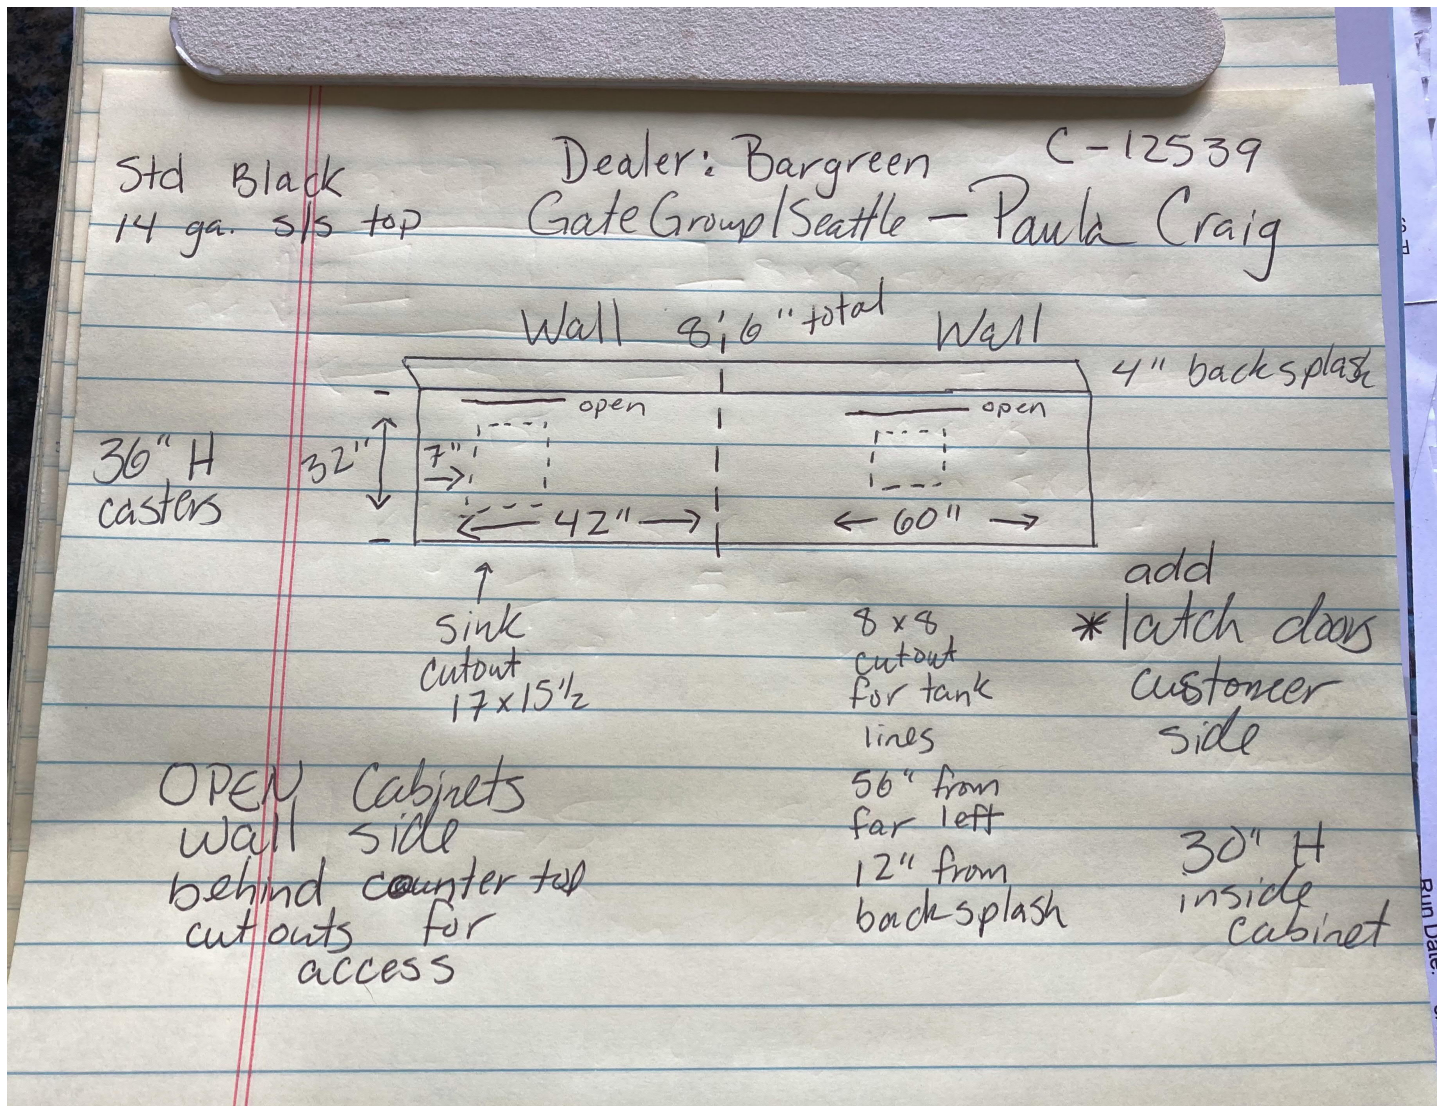 Std Black
14 ga. s/s top
Dealer: Bargreen
C-12539
GateGroup/Seattle - Paula Craig
Wall 8'6" total Wall
4" backsplash
open
open
36" H
casters
32"
7"
42"
60"
sink
cutout
17x15 1/2
8x8
cutout
for tank
lines
56" from
far left
12" from
backsplash
add
* latch doors
customer
side
OPEN Cabinets
wall side
behind counter top
cutouts for
access
30" H
inside
cabinet
Run Date: